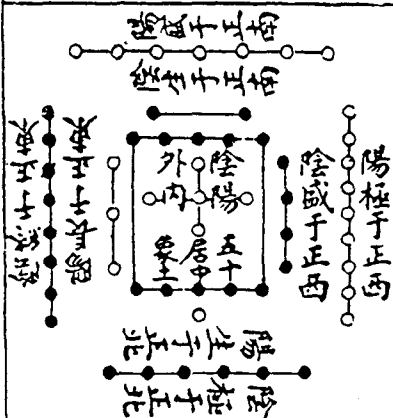 陽盛于正南
陰生于正南
陽極于正西
陰盛于正西
陰陽
外内
五十
居中
象土
陽長于正東
陽生于正北
陰極于正北